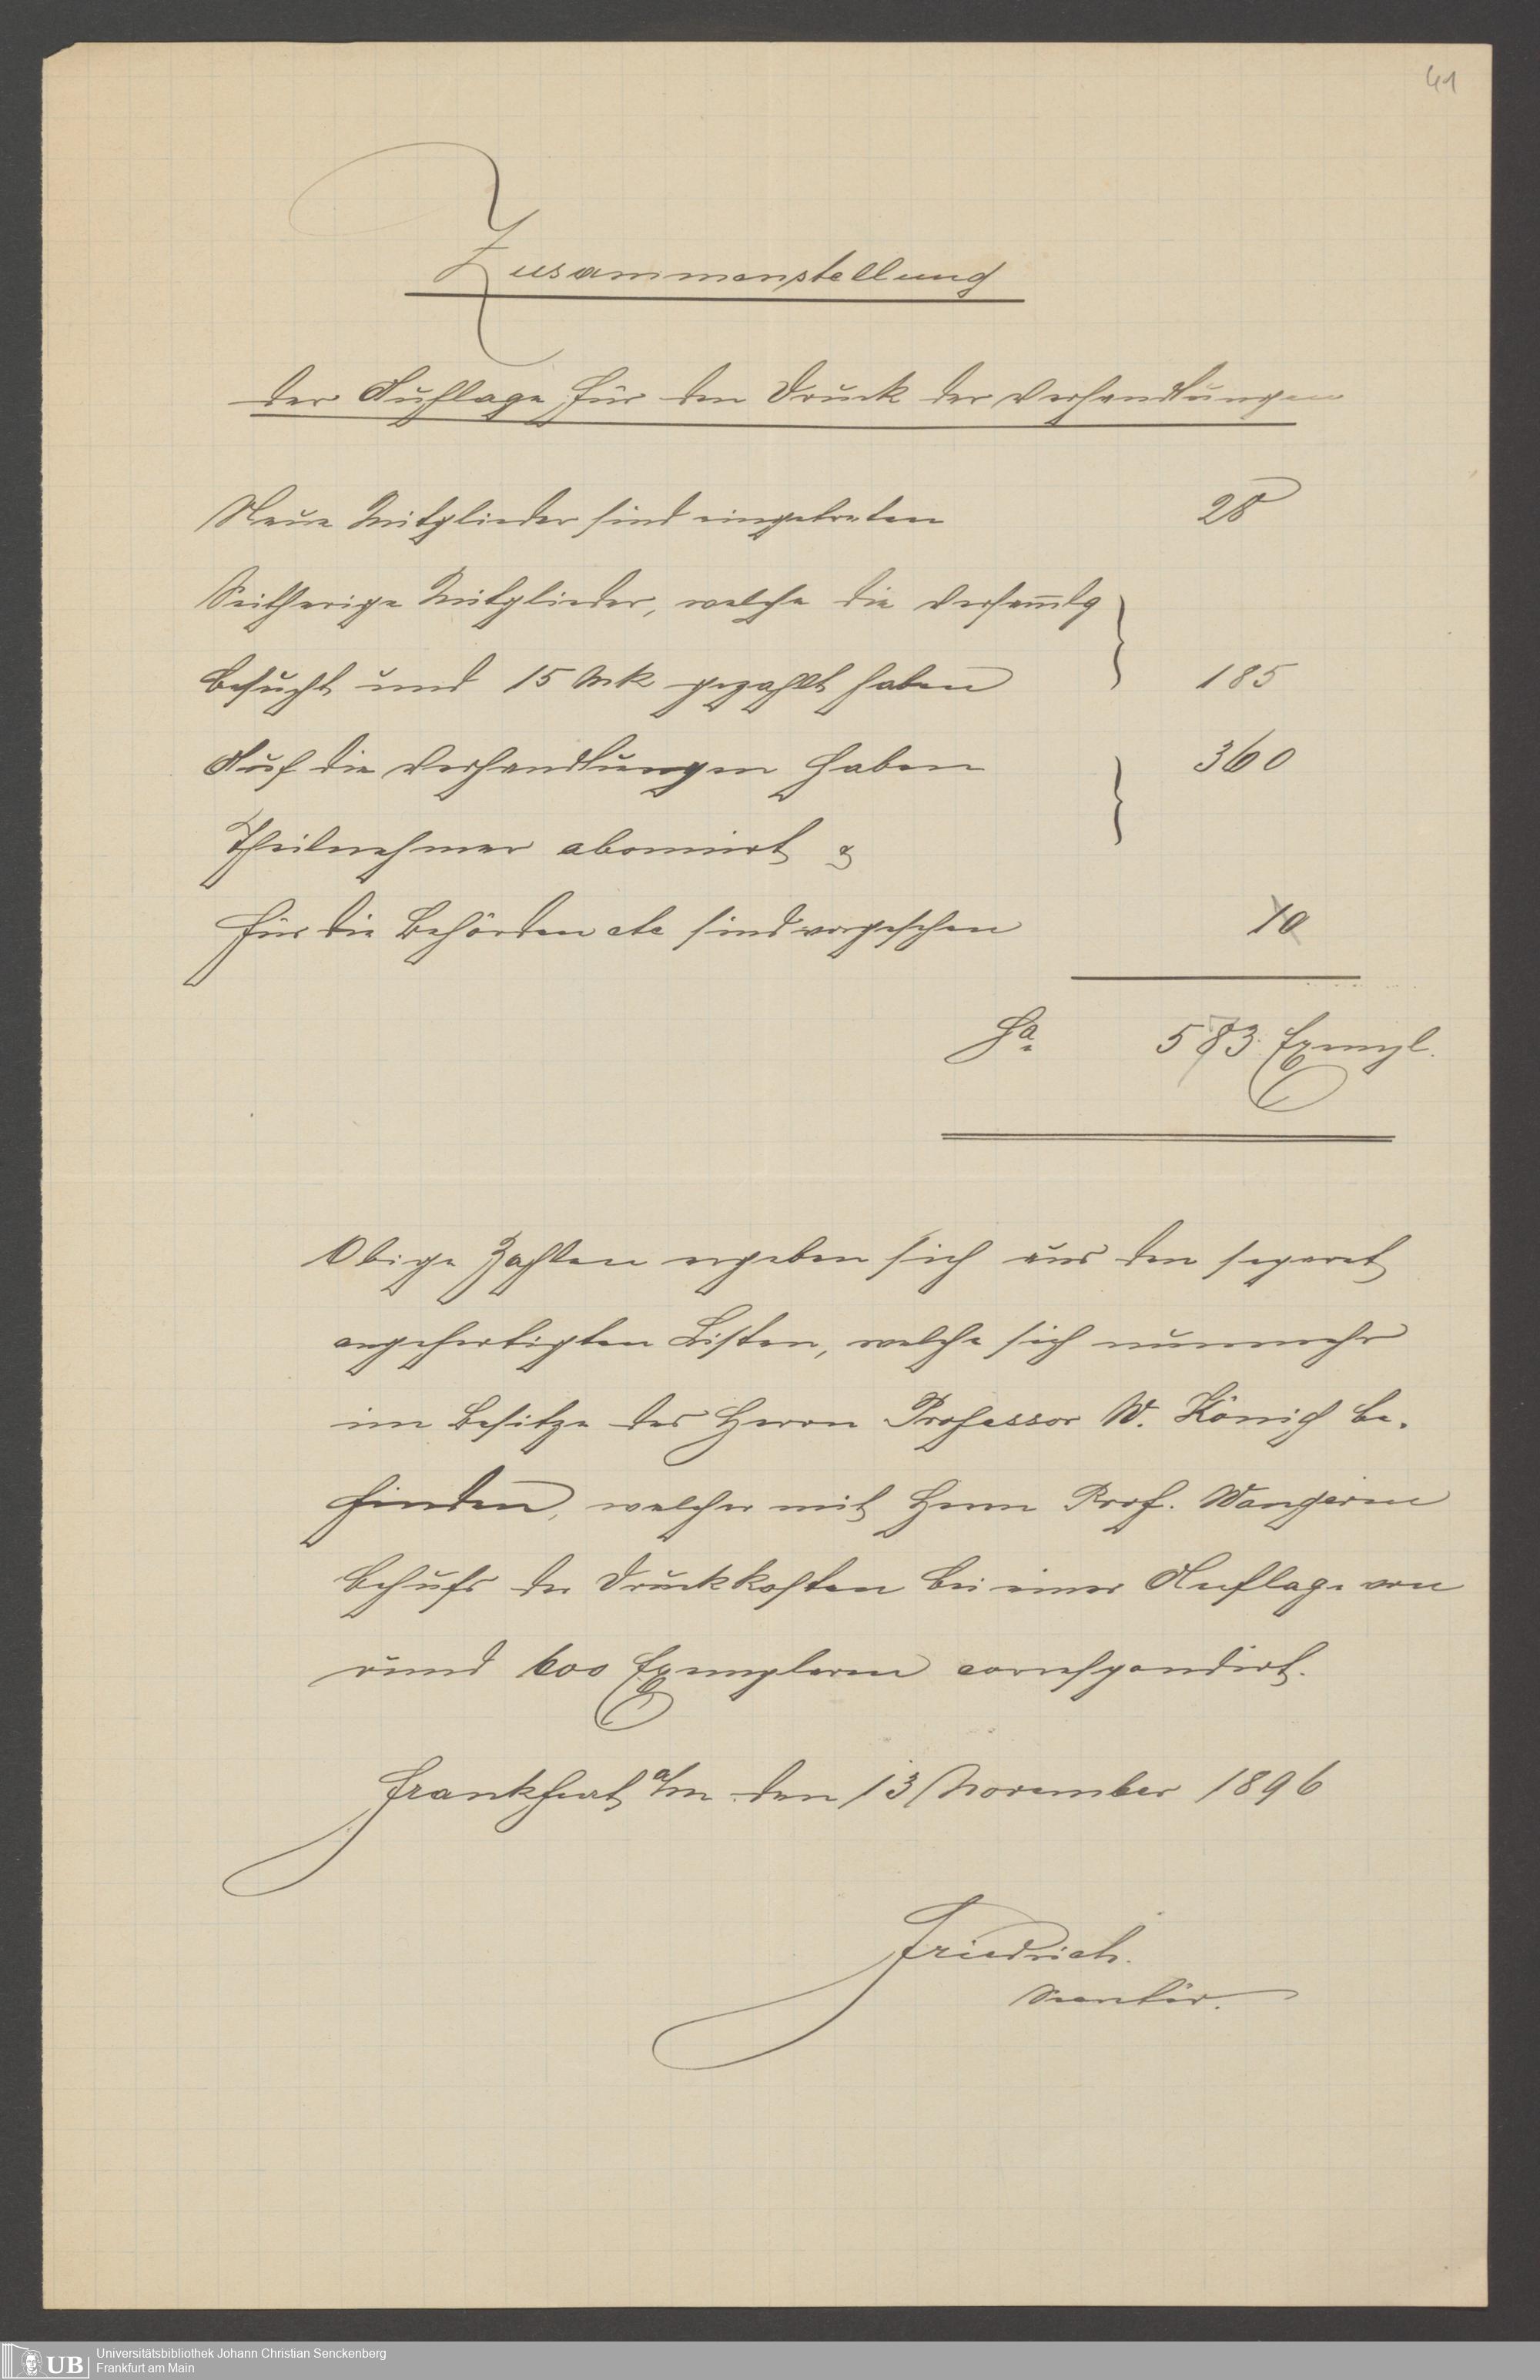 41
Zusammenstellung
der Auflage für den Druck der Verhandlungen
Neue Mitglieder sind eingetreten 28
Seitherige Mitglieder, welche die Versam̅lg
besucht und 15 Mk gezahlt haben 185
Auf die Verhandlungen haben 360
Theilnehmer abonnirt &
für die Behörden etc sind vorgesehen 10
Sa. 583 Exempl.
Obige Zahlen ergeben sich aus den separat
angefertigten Listen, welche sich nunmehr
im Besitze des Herrn Professor W. König be-
finden, welcher mit Herrn Prof. Wangerin
behufs der Druckkosten bei einer Auflage von
rund 600 Exemplaren correspondirt.
Frankfurt a/m den 13 November 1896
Friedrich.
Universitätsbibliothek Johann Christian Senckenberg
Frankfurt am Main
UB